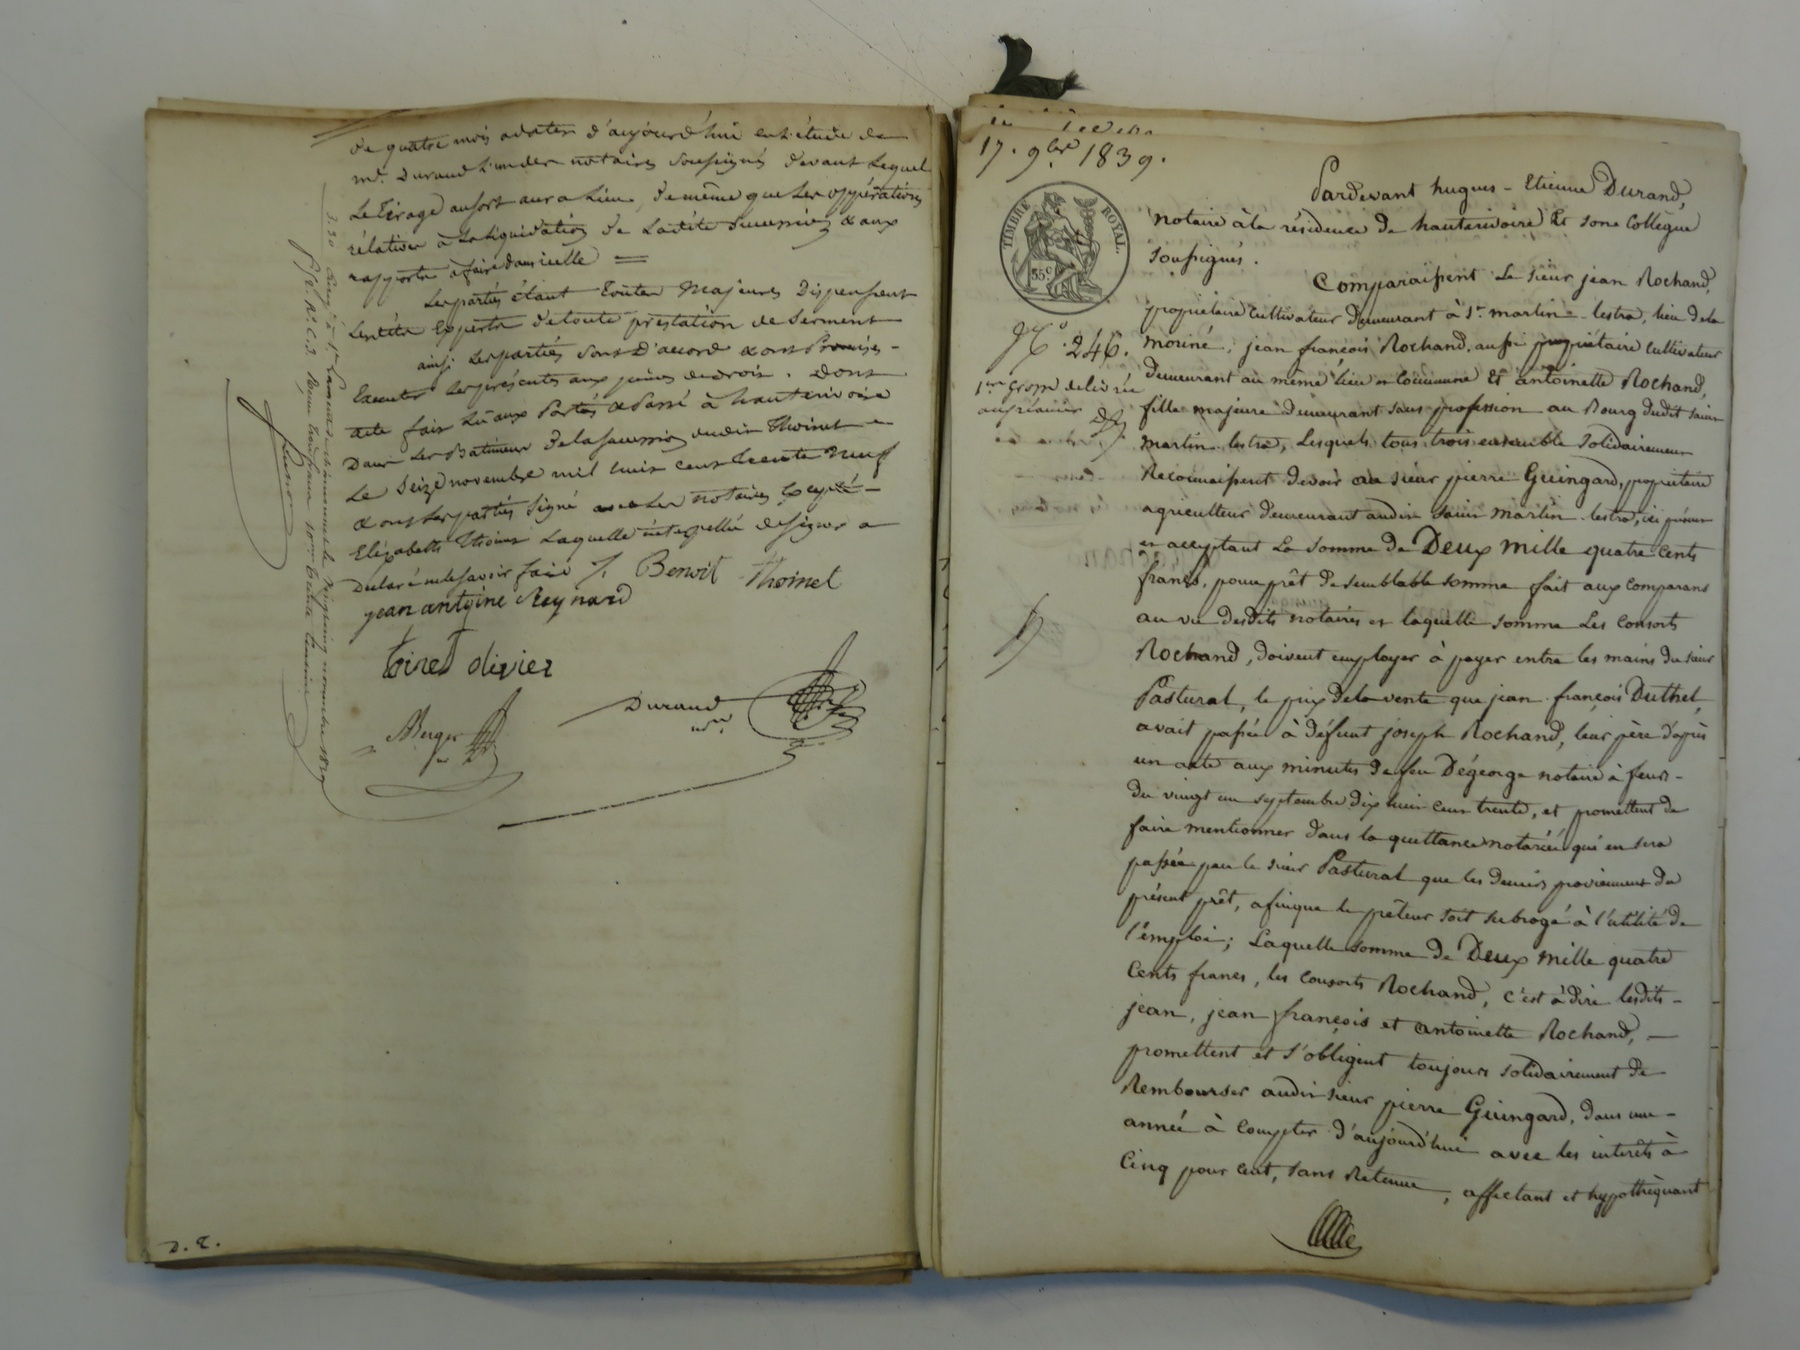 de quatre mois adater d'aujourd'hui en l'étude de
me. Durand l'un des notaires soussignés devant Lequel
Le Tirage au sort aura Lieu, de même que Les oppérations
rélatives à La liquidation de Ladite succession & aux
rapports à faire dans icelle =
Les parties étant toutes Majeures Dispensent
Lesdits Experts de toute prestation de Serment
ainsi Les parties sont D'accord & ont Promis -
Executer Les présentes aux peines de droit. Dont
acte fait Lu aux Parties & Passé à hauterivoire
Dans Les Batiments De la succession dudit Thoinet
Le Seize novembre mil huit cent trente neuf
& ont Les parties Signé avec Les notaires Excepté -
Elizabeth Thoinet Laquelle intérpellée de signer a
Declaré ne le savoir faire /. Benoit Thoinet
jean antoine Reynard
Olivier
Berger
Durand
nre.
D. E.
17. 9bre 1839.
TIMBRE ROYAL.
35c
Pardevant hugues - Etienne Durand,
notaire à la résidence de hauterivoire Et son Collègue
soussignés.
Comparaissent Le sieur jean Rochand,
propriétaire Cultivateur Demeurant à St. martin - lestra, lieu de la
No. 246.
moriné, jean françois Rochand, aussi propriétaire cultivateur
Demeurant au même lieu et Commune Et antoinette Rochand,
1ere grosse delivrée
au créancier
fille majeure Demeurant sans profession au Bourg dudit saint
martin lestra, Lesquels tous trois ensemble solidairement
Reconnaissent Devoir au sieur pierre Guingard, propriétaire
agriculteur Demeurant audit saint Martin - lestra, ici présent
et acceptant La somme de Deux mille quatre cents
francs, pour prêt de semblable somme fait aux comparans
au vu desdits notaires et laquelle somme Les Consorts
Rochand, doivent employer à payer entre les mains du sieur
Pastural, le prix de la vente que jean françois Duthel,
avait passée à défunt joseph Rochand, leur père d'après
un acte aux minutes de feu Dégeorge notaire à feurs -
du vingt un septembre dix huit cent trente, et promettent de
faire mentionner dans la quittance notariée qui en sera
passée par le sieur Pastural que les deniers proviennent du
présent prêt, afin que le prêteur soit subrogé à l'utilité de
l'emploi; Laquelle somme de Deux mille quatre
Cents francs, les consorts Rochand, c'est à dire lesdits -
jean, jean françois et antoinette Rochand, -
promettent et s'obligent toujours solidairement de
Rembourser audit sieur pierre Guingard, dans une -
année à compter d'aujourd'hui avec les intérêts à
Cinq pour cent, sans Retenue, affectant et hypothéquant